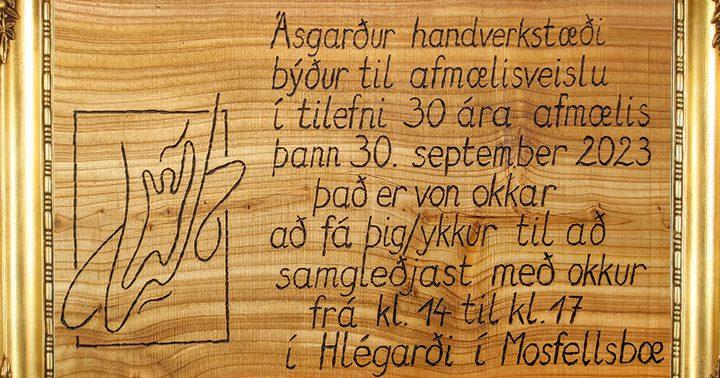 Ásgarður handverkstæði
býður til afmælisveislu
í tilefni 30 ára afmælis
þann 30. september 2023
það er von okkar
að fá þig/ykkur til að
samgleðjast með okkur
frá kl. 14 til kl. 17
í Hlégarði í Mosfellsbæ